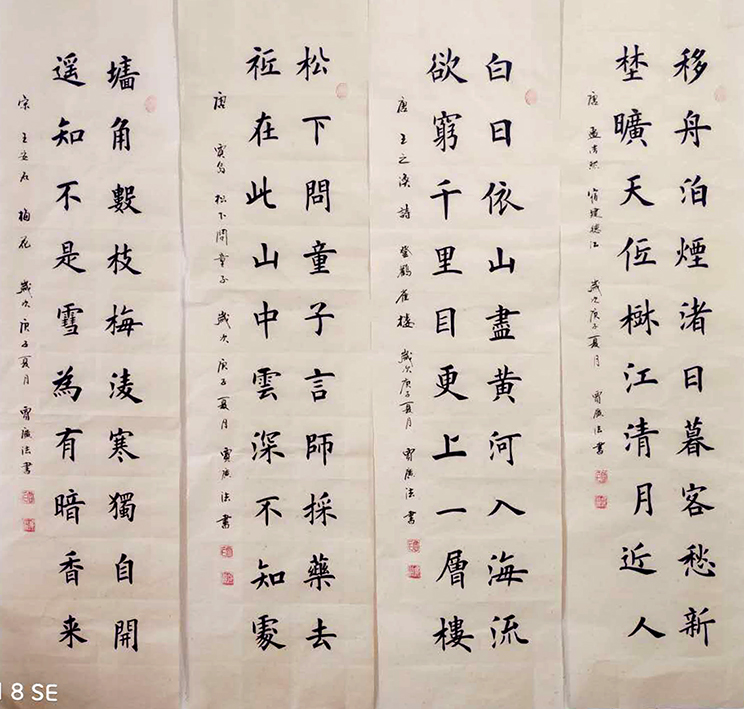 移舟泊煙渚日暮客愁新
埜曠天低樹江清月近人
唐 孟浩然 宿建德江 歲次庚子夏月 賈廣法書
白日依山盡黄河入海流
欲窮千里目更上一層樓
唐 王之渙 詩 登鸛雀樓 歲次庚子夏月 賈廣法書
松下問童子言師採藥去
祗在此山中雲深不知處
唐 賈島 松下問童子 歲次庚子夏月 賈廣法書
墻角數枝梅淩寒獨自開
遥知不是雪為有暗香来
宋 王安石 梅花 歲次庚子夏月 賈廣法書
8 SE